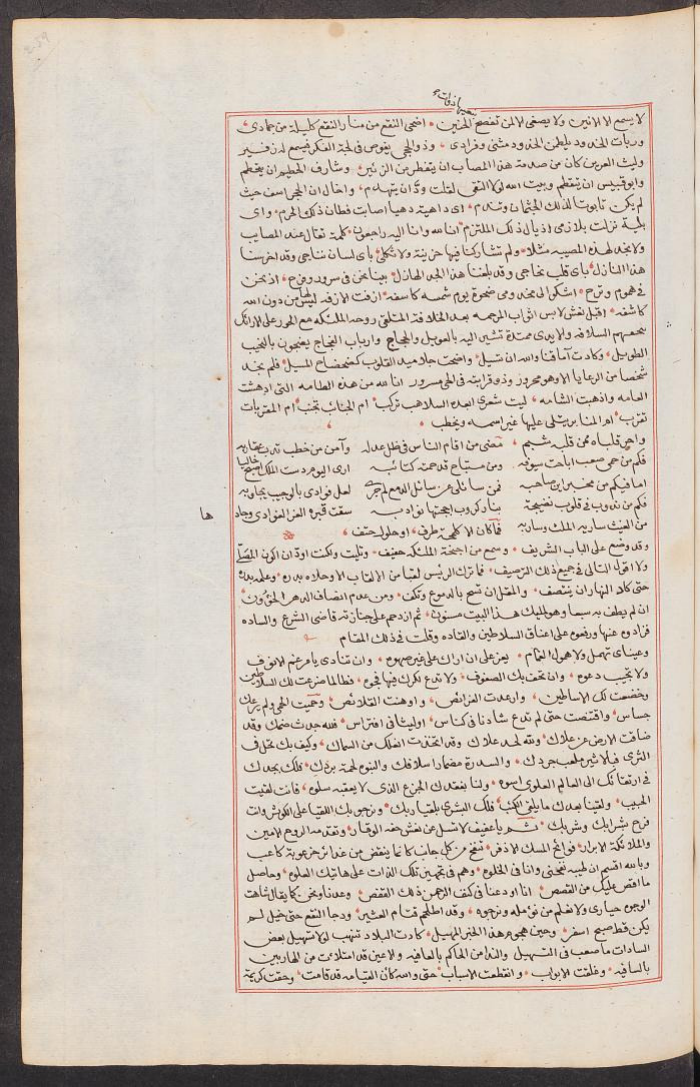 259
لا يسمع الا الانين ولا يصغى الا لمن تفصح الحنين اضحى النقع من منار النقع كليلة من جمادى
وربات الخدود يلطمن الخدود مثنى وفرادى وذو الحجى يغوص فى لجة الفكر فيسمع له زفير
وليث العرين كان من صدمة هذا المصاب ان يتفطر من الزئير وشارف الحطيم ان يتحطم
وابو قبيس ان يتقطم وبيت الله لولا التقى لقلت ود ان يتهدم واخال ان الحجر اسف حيث
لم يكن تابوتا لذلك الجثمان وتندم اى داهية دهيا اصابت قطان ذلك الحرم واى
بلية نزلت بلازمى اذيال ذلك الملتزم انا لله وانا اليه راجعون كلمة تقال عند المصايب
ولا نجد لهذه المصيبه مثلا ولم تشاركنا فيها حزينة ولا ثكلى باى لسان نناجى وقد اخرسنا
هذا النازل باى قلب نحاجى وقد بلغنا هذا الجد الهازل بينا نحن فى سرور وفرح اذ نحن
فى هموم وترح ضحوة يوم شمسه كاسفه ازفت الازفه ليس لها من دون الله
كاشفه اقبل نعش لابس اثواب المرحمه بعد الخلافة المتلقى روحه الملئكه مع الحور على الارائك
والايدى ممتدة تشير اليه بالعويل والعجاج وارباب الفجاج يعجون بالنحيب
الطويل وكادت آماقنا والله ان تسيل واضحت جلاميد القلوب فلم نجد
شخصا من الرعايا الا وهو محرور وذو قرابته فى الحى مسرور انا لله من هذه الطامه التى ادهشت
العامه واذهبت الشامه ليت شعرى ابعده السلاهب تركب ام الجنائب تجنب ام المقربات
تقرب ام المنابر يتلى عليها غير اسمه ويخطب
واحر قلباه ممن قلبه شبم مضى من اقام الناس فى ظل عدله وآمن من خطب تدب عقاربه
فكم من حمى صعب اباحت سيوفه ومن مستباح قد حمته كتائبه ارى اليوم دست الملك اصبح خاليا
اما فيكم من مخبر اين صاحبه فمن سائلى عن سائل الدمع لم جرى لعل فؤادى بالوجيب يجاوبه
فكم من ندوب فى قلوب نضيجة بنار كروب اججتها نوادبه سقت قبره الغر الغوادى وجاد
ها
من الغيث ساريه الملث وساربه فما كان الا كلمحة طرف او حلول حتف
وقد وضع على الباب الشريف وسمع من اجنحة الملئكه حفيف وتليت وكنت اود ان اكون المصلى
ولا اقول التالى فى جميع ذلك الترصيف فما ترك الريس لقبا من الالقاب الا وحلاه بدره وعلمه بدره
حتى كاد النهار ان ينتصف والمقل ان تسح بالدموع وتكف ومن عدم انصاف الدهر الخؤون
ان لم يطف به سبعا وهو لمليك هذا البيت مسنون ثم ازدحم على جنازته قاضى الشرع والساده
فزادوه عنها ورفعوه على اعناق السلاطين والقاده وقلت فى ذلك المقام
وعيناى تهمل ولا هول الغمام يعز على ان اراك على غير صهوه وان تنادى يا مرغم الانوف
ولا تجيب دعوه وان تحف بك الصفوف ولا تدع لكرك فيها فجوه فطالما ضرعت لك السلاطين
وخضعت لك الاساطين وارعدت الفرائص واوهنت القلائص وحميت الحمى ولم يرعك
جساس واقتنصت حتى لم تدع شادنا فى كناس او ليثا فى افتراس فلله جدث ضمك وقد
ضاقت الارض عن علاك ولله لحد علاك وقد اتخذت الفلك من السماك وكيف بك تحل فى
الثرى فبالاثير ملعب جردك والسدرة مضمار اسلافك والنبوه لحمة بردك فلك بجدك
فى ارتقائك الى العالم العلوى اسوه ولنا بفقدك الجزع الذى لا يعقبه سلوه فانت لقيت
الحبيب ولقينا بعدك ما يلقى الكئيب فلك البشرى بلقيا ربك ونرجو بك اللقيا على الكوثر وانت
فرح بشرابك وشربك قسم يا عفيف لا تسل عن نعش حفه الوقار وتقدمه الروح الامين
والملائكة الابرار فوائح المسك الاذفر تنفح من كل جانب كانما ينفض من غدائر خرعوبة كاعب
وبالله اقسم ان طيبه نفحنى وانا فى الخلوه وهم فى تجهيز تلك الذات على هاتيك العلوه وحاصل
ما اقص عليك من القصص انا اودعنا فى كنف الرحمن ذلك القفص وعدنا ونحن كما يقال شاهت
الوجوه حيارى ولا نعلم من نؤمله ونرجوه وقد اظلهم قتام العثير ودجا النقع حتى خيل لم
يكن قط صبح اسفر وحين هجوم هذا الخبر المهيل كادت البلاد تنهب لولا تسهيل بعض
السادات ما صعب فى التسهيل والندا من الحاكم بالعافيه والاعين قد امتلات من الهاربين
بالسافيه وغلقت الابواب وانقطعت الاسباب حتى والله كأن القيامه قد قامت وحقت كريمة